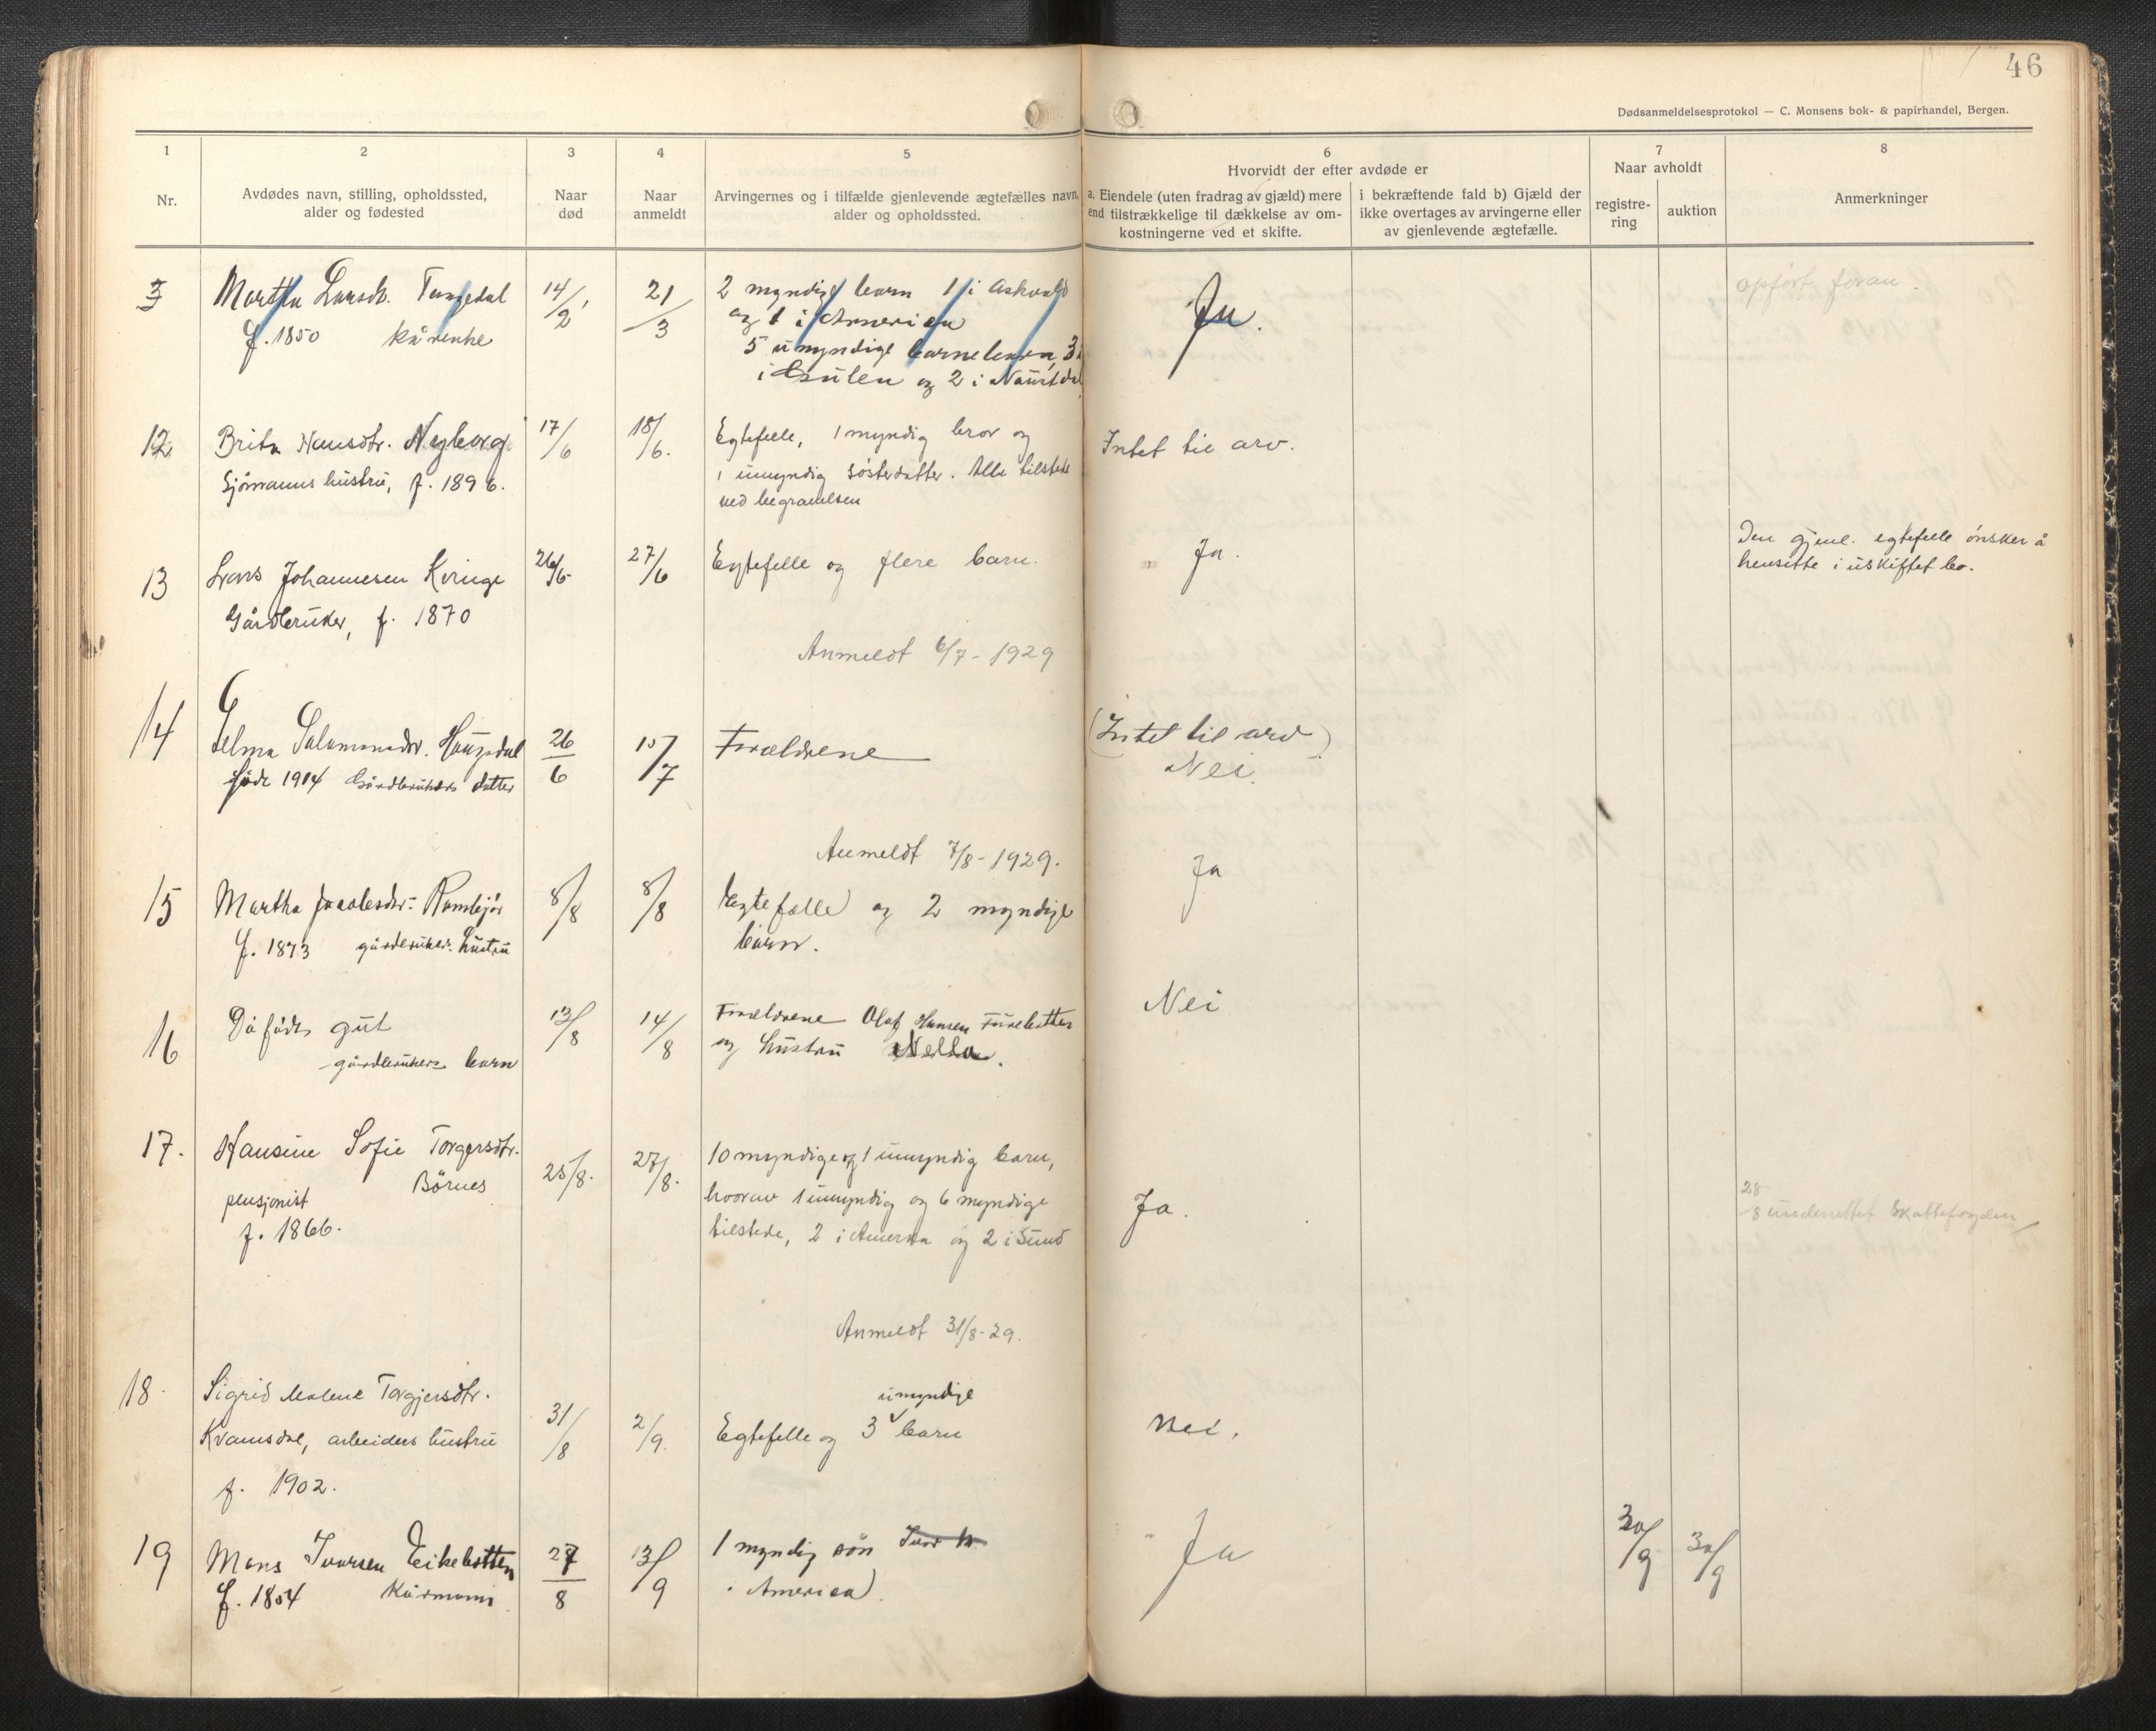 46
Dødsanmeldelsesprotokol — C. Monsens bok- & papirhandel, Bergen.
1
Nr.
2
Avdødes navn, stilling, opholdssted,
alder og fødested
3
Naar
død
4
Naar
anmeldt
5
Arvingernes og i tilfælde gjenlevende ægtefælles navn,
alder og opholdssted.
6
Hvorvidt der efter avdøde er
a. Eiendele (uten fradrag av gjæld) mere
end tilstrækkelige til dækkelse av om-
kostningerne ved et skifte.
i bekræftende fald b) Gjæld der
ikke overtages av arvingerne eller
av gjenlevende ægtefælle.
7
Naar avholdt
registre-
ring
auktion
8
Anmerkninger
Martha Larsdt.
f. 1850 kårenke
14/2
21/3
2 myndige barn 1 i Askvold
og 1 i America
5 umyndige barnebarn, 3
i Gulen og 2 i Naustdal
Ja.
opført foran.
12
Brita Hansdtr. Nyborg
Sjømanns hustru, f. 1896.
17/6
18/6.
Egtefelle, 1 myndig bror og
1 umyndig søsterdatter. Alle tilstede
ved begravelsen
Intet til arv.
13
Lars Johannesen Kringe
Gårdbruker, f. 1870
26/6.
27/6
Egtefelle og flere barn.
Ja.
Den gjenl. egtefelle ønsker å
hensitte i uskiftet bo.
Anmeldt 6/7 - 1929
14
Selma Salamonsdtr. Haugsdal
född 1914 Gårdbrukers datter
26/6
15/7
Forældrene
(Intet til arv)
Nei.
Anmeldt 7/8 - 1929.
15
Martha
f. 1873 gårdbruker. hustru
8/8
8/8
Egtefælle og 2 myndige
barn.
Ja
16
Dö född gut
gårdbrukers barn
13/8
14/8
Forældrene Olaf Hansen
og hustru Nella.
Nei
17.
Hansine Sofie Torgersdtr.
Børnes
pensjonist
f. 1866.
25/8.
27/8.
10 myndige og 1 umyndig barn,
hvorav 1 umyndig og 6 myndige
tilstede, 2 i Amerika og 2 i Sund
Ja.
28/8 underrettet Skattefogden
Anmeldt 31/8-29.
18.
Sigrid Malene Torgjersdtr.
Kvamsdal, arbeiders hustru
f. 1902.
31/8
2/9.
umyndige
Egtefelle og 3 barn
Nei.
19
Mons Ivarsen Eikebotten
f. 1854 Kårmann
27/8
13/9
1 myndig søn
i America
Ja
30/9
30/9